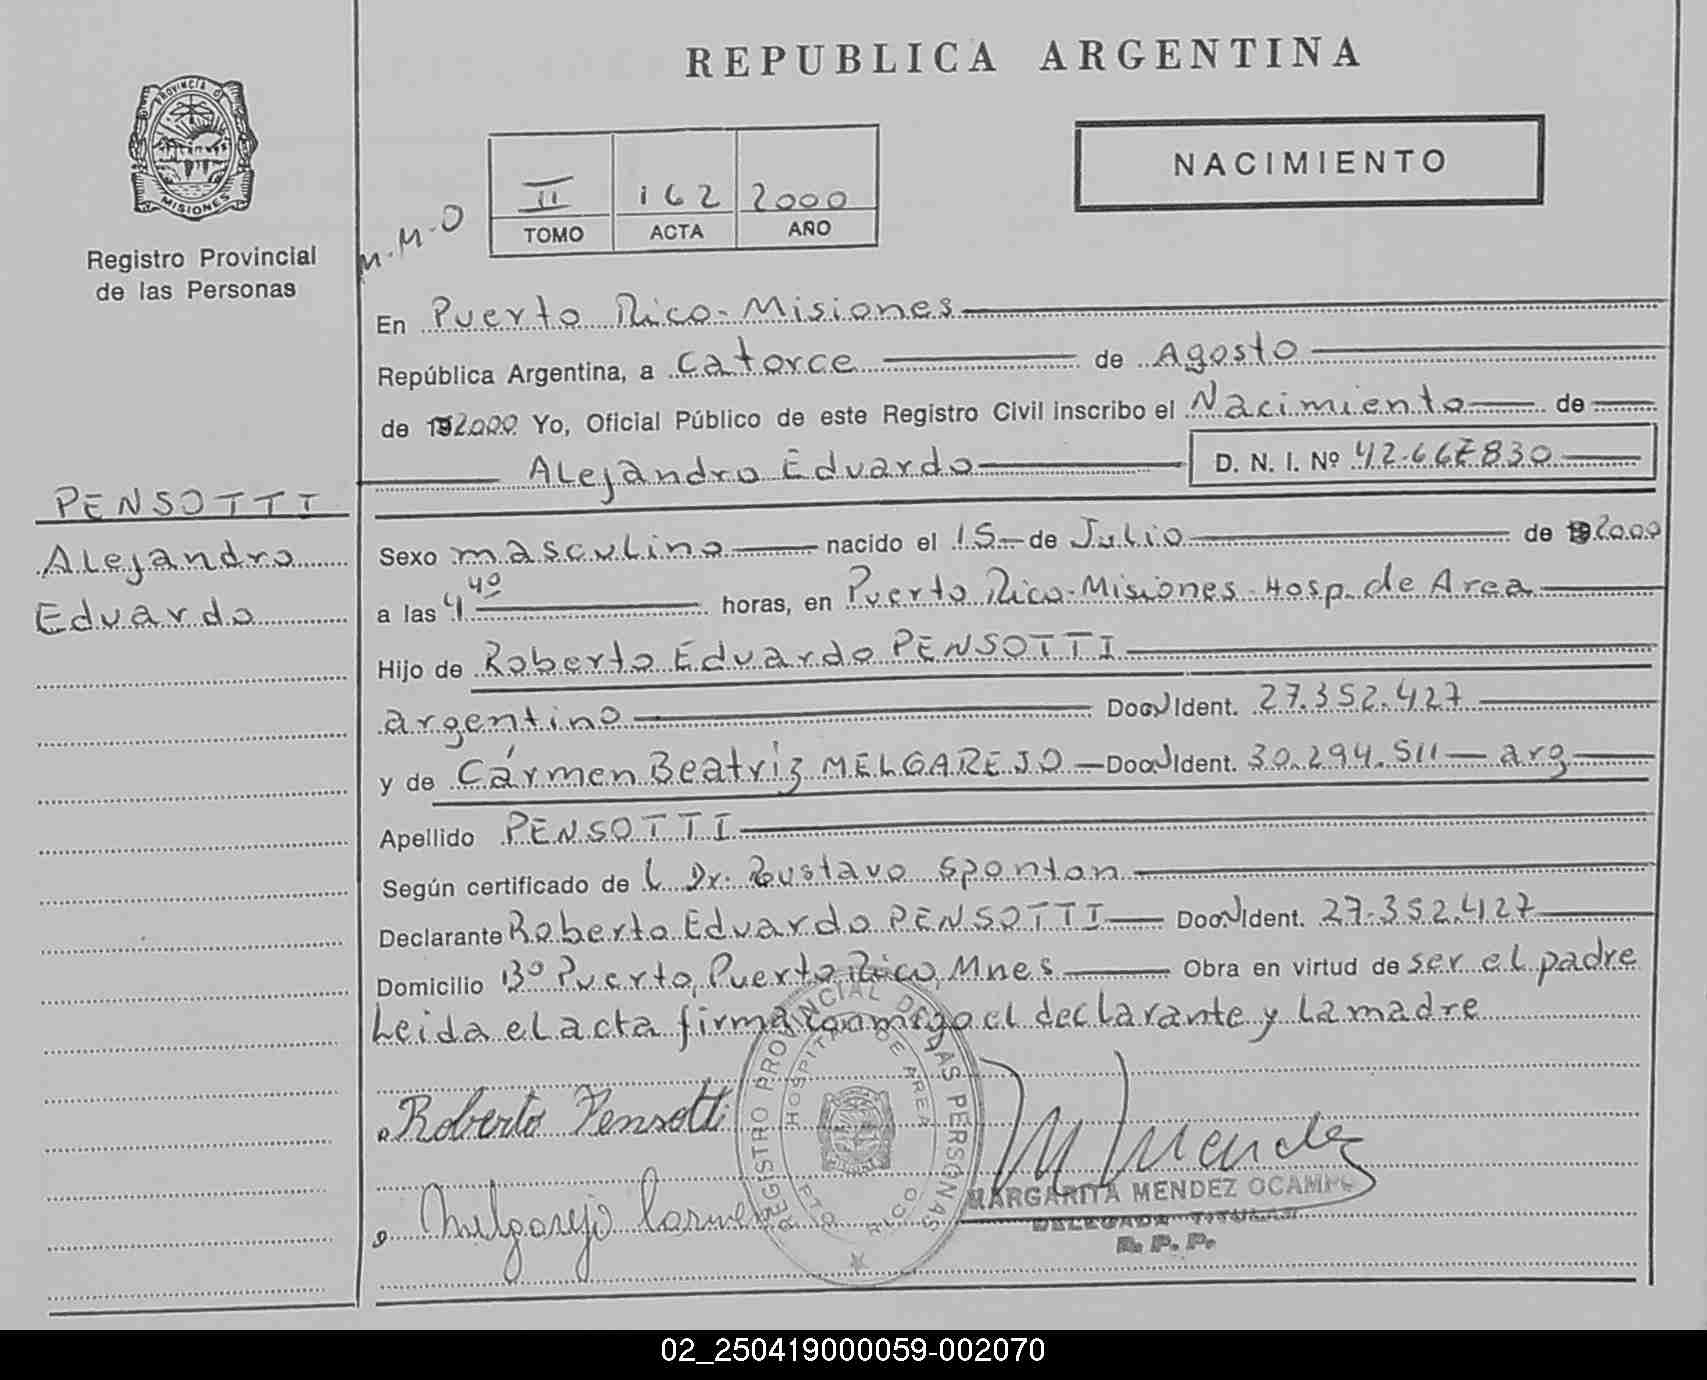 REPUBLICA ARGENTINA
PROVINCIA DE
MISIONES
Registro Provincial
de las Personas
NACIMIENTO
II 162 2000
TOMO ACTA AÑO
M.M.O
En Puerto Rico - Misiones
República Argentina, a catorce de Agosto
de 2000 Yo, Oficial Público de este Registro Civil inscribo el Nacimiento de
Alejandro Eduardo D. N. I. Nº 42.667830
PENSOTTI
Alejandro
Eduardo
Sexo masculino nacido el 15 de Julio de 2000
a las 4 40 horas, en Puerto Rico - Misiones - Hosp. de Area
Hijo de Roberto Eduardo PENSOTTI
argentino Doc. Ident. 27.352.427
y de Cármen Beatriz MELGAREJO Doc. Ident. 30.294.511 - arg
Apellido PENSOTTI
Según certificado de l Dr. Gustavo Sponton
Declarante Roberto Eduardo PENSOTTI Doc. Ident. 27.352.427
Domicilio Bº Puerto, Puerto Rico, Mnes Obra en virtud de ser el padre
Leida el acta firma conmigo el declarante y la madre
REGISTRO PROVINCIAL DE LAS PERSONAS
HOSPITAL DE AREA
PTO. RICO
Roberto Pensotti
Melgarejo Carmen
M Mendez
MARGARITA MENDEZ OCAMPO
DELEGADA TITULAR
R. P. P.
02_250419000059-002070